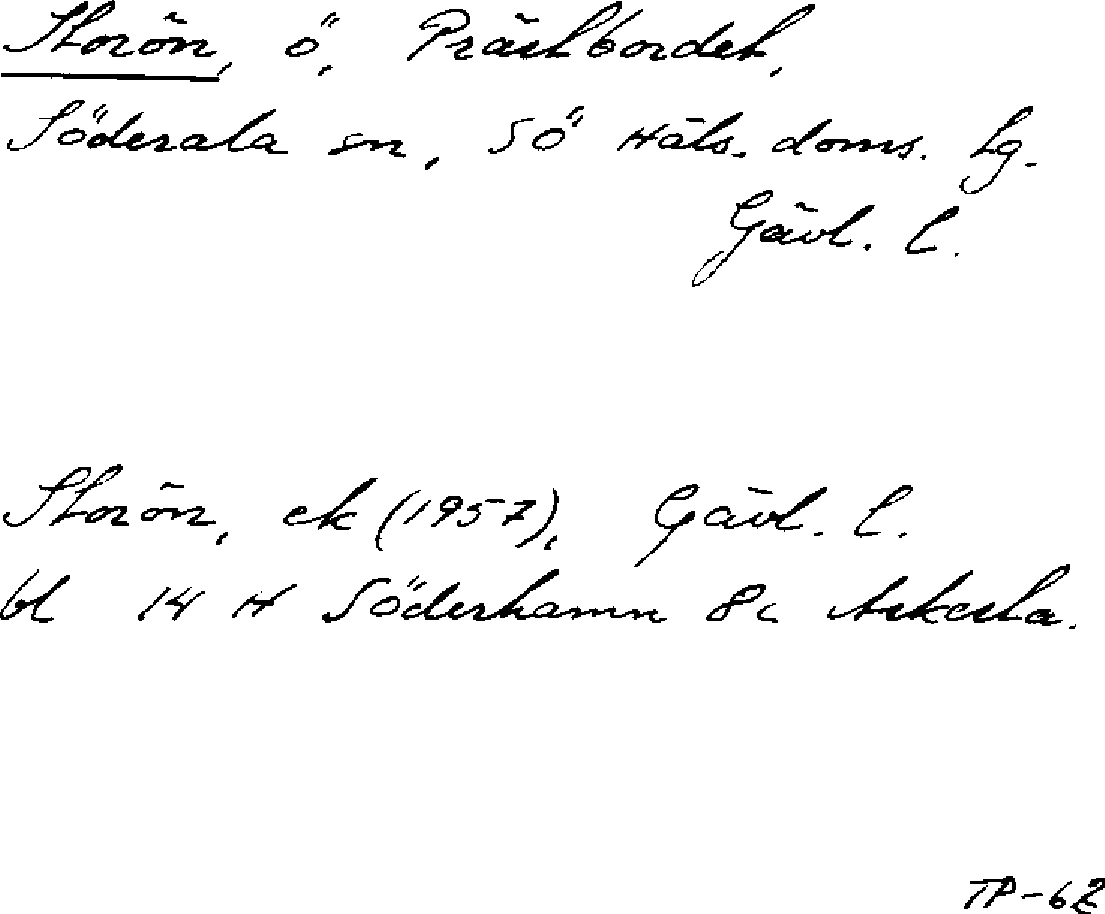 Storön, ö, Prästbordet,
Söderala sn, SÖ Häls. doms. lg.
Gävl. l.
Storön, ek (1957), Gävl. l.
bl 14 H Söderhamn 8c Askesta.
TP-62